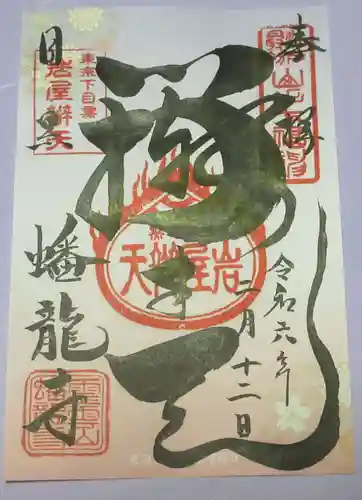 奉拝
令和六年
二月十二日
辨才天
岩屋辨天
東京下目黒
岩屋辨天
目黒
蟠龍寺